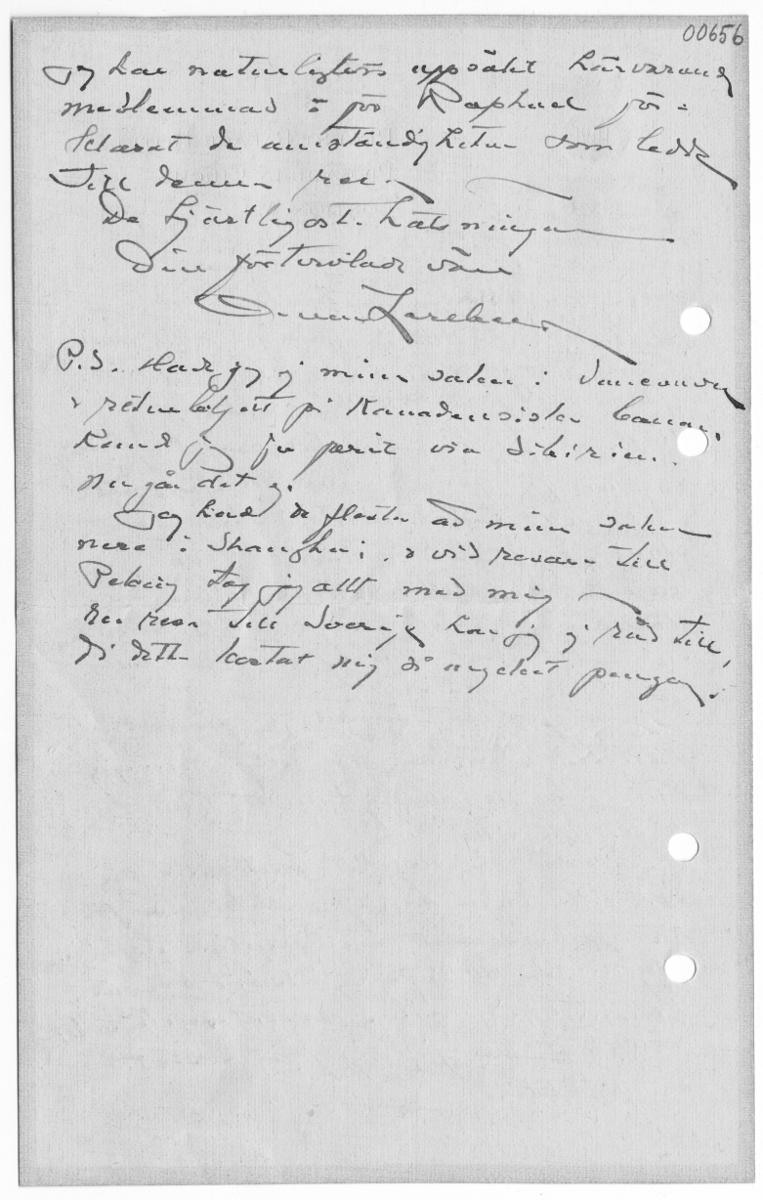 00656
Jag har naturligtvis uppsökt härvarand
medlemmar & för Raphael för-
klarat de omständigheter som ledde
till denna res
De hjärtligaste hälsningar
Din förtvivlade vän
Orvar Karlbeck
P.S. Hade jag ej mina saker i Vancouver
& returbiljett på Kanadensiska banan,
kunde jag ju farit via Sibirien.
Nu går det ej.
Jag hade de flesta av mina saker
nere i Shanghai, & vid resan till
Peking tog jag allt med mig
En resa till Sverige har jag ej råd till,
då detta kostat mig så mycket pengar.